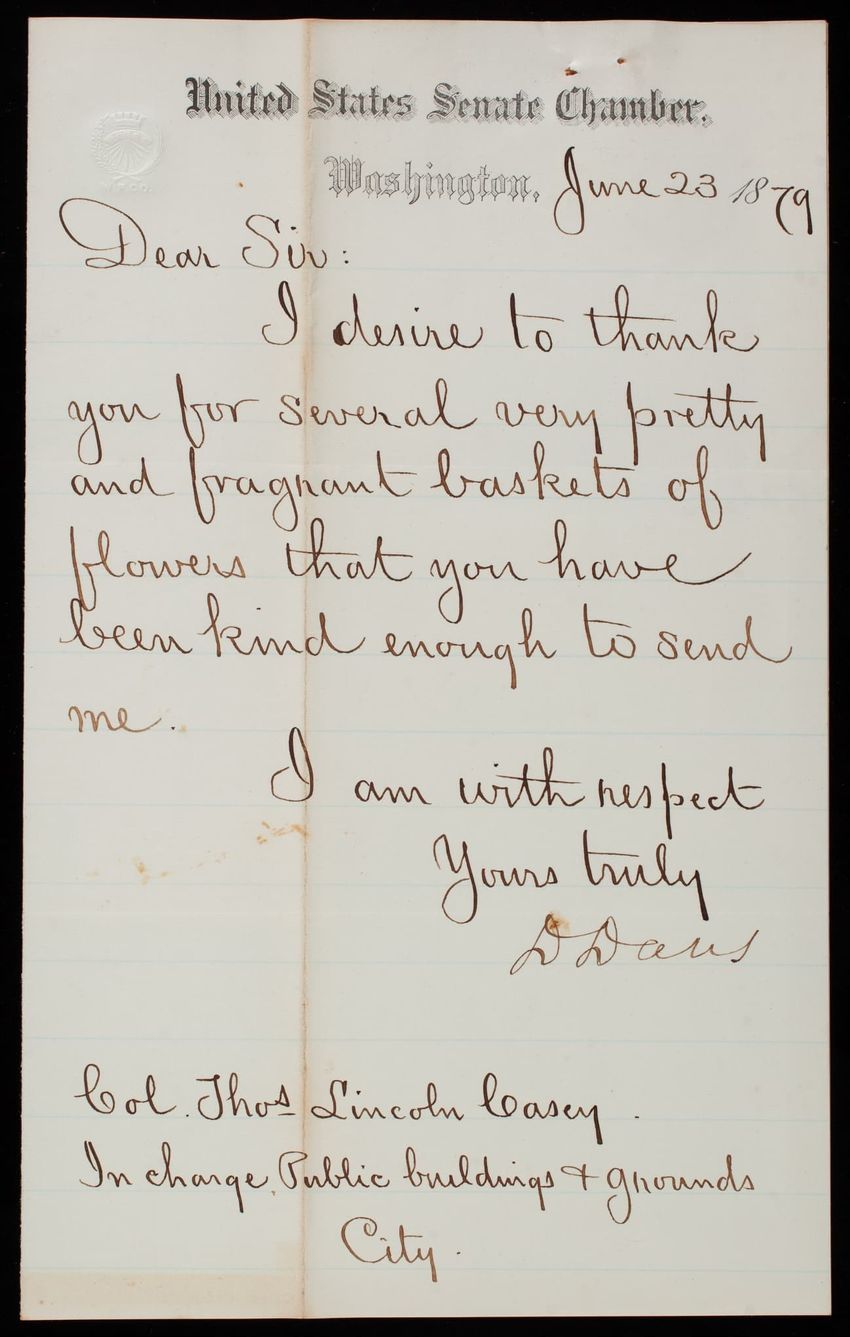 United States Senate Chamber.
Washington, June 23 1879
Dear Sir:
I desire to thank
you for several very pretty
and fragrant baskets of
flowers that you have
been kind enough to send
me.
I am with respect
Yours truly
D Davis
Col. Thos Lincoln Casey.
In charge Public buildings & grounds
City.